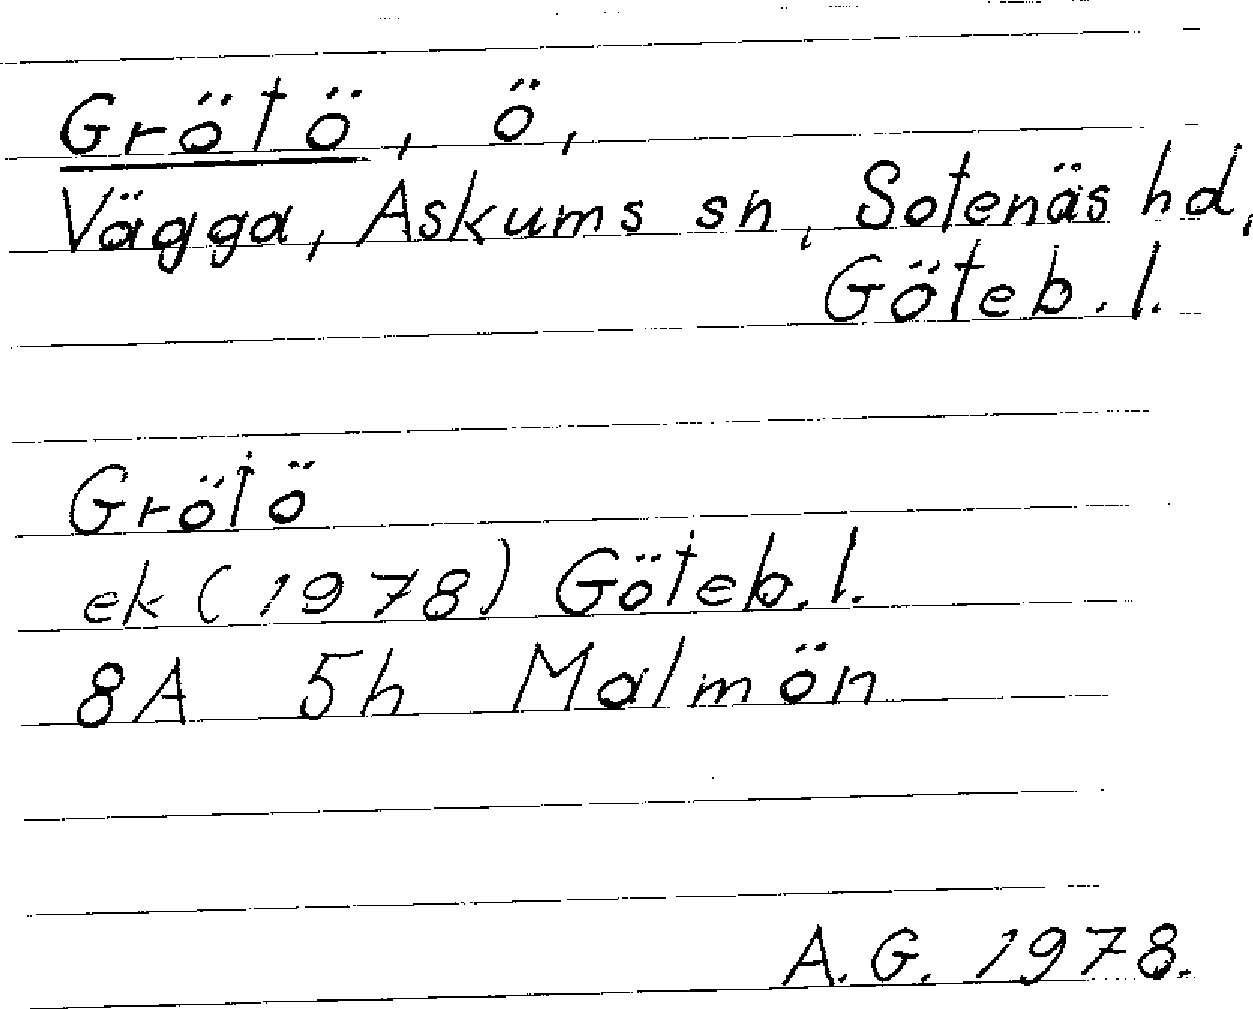 Grötö, ö,
Vägga, Askums sn, Sotenäs hd,
Göteb. l.
Grötö
ek (1978) Göteb. l.
8A 5h Malmön
A. G. 1978.